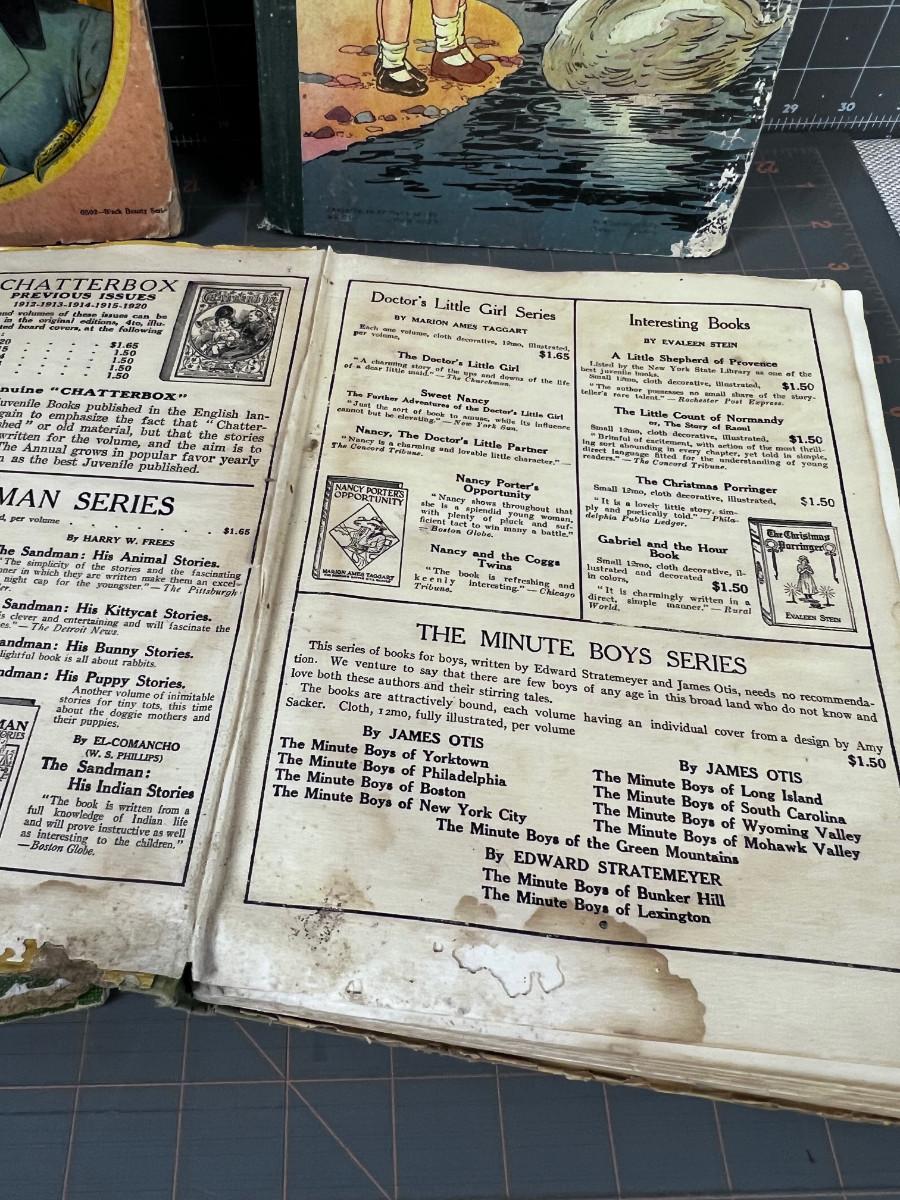 6502—Black Beauty Series
29 30
CHATTERBOX
PREVIOUS ISSUES
1912-1913-1914-1915-1920
nd volumes of these issues can be
in the original editions, 4to, illu-
ted board covers, at the following
$1.65
1.50
1.50
1.50
1.50
CHATTERBOX
nuine "CHATTERBOX"
uvenile Books published in the English lan-
gain to emphasize the fact that "Chatter-
shed" or old material, but that the stories
written for the volume, and the aim is to
The Annual grows in popular favor yearly
n as the best Juvenile published.
MAN SERIES
d, per volume . . . . . . . $1.65
By HARRY W. FREES
he Sandman: His Animal Stories.
"The simplicity of the stories and the fascinating
ner in which they are written make them an excel-
night cap for the youngster."—The Pittsburgh
Sandman: His Kittycat Stories.
s clever and entertaining and will fascinate the
es."—The Detroit News.
andman: His Bunny Stories.
lightful book is all about rabbits.
ndman: His Puppy Stories.
Another volume of inimitable
stories for tiny tots, this time
about the doggie mothers and
their puppies.
By EL-COMANCHO
(W. S. PHILLIPS)
The Sandman:
His Indian Stories
"The book is written from a
full knowledge of Indian life
and will prove instructive as well
as interesting to the children."
—Boston Globe.
Doctor's Little Girl Series
BY MARION AMES TAGGART
Each one volume, cloth decorative, 12mo, illustrated,
per volume, $1.65
The Doctor's Little Girl
"A charming story of the ups and downs of the life
of a dear little maid."—The Churchman.
Sweet Nancy
The Further Adventures of the Doctor's Little Girl
"Just the sort of book to amuse, while its influence
cannot but be elevating."—New York Sun.
Nancy, The Doctor's Little Partner
"Nancy is a charming and lovable little character."—
The Concord Tribune.
Nancy Porter's
Opportunity
"Nancy shows throughout that
she is a splendid young woman,
with plenty of pluck and suf-
ficient tact to win many a battle."
—Boston Globe.
Nancy and the Coggs
Twins
"The book is refreshing and
keenly interesting."—Chicago
Tribune.
NANCY PORTER'S
OPPORTUNITY
MARION AMES TAGGART
Interesting Books
BY EVALEEN STEIN
A Little Shepherd of Provence
Listed by the New York State Library as one of the
best juvenile books.
Small 12mo, cloth decorative, illustrated, $1.50
"The author possesses no small share of the story-
teller's rare talent."—Rochester Post Express.
The Little Count of Normandy
or, The Story of Raoul
Small 12mo, cloth decorative, illustrated, $1.50
"Brimful of excitement, with action of the most thrill-
ing sort abounding in every chapter, yet told in simple,
direct language fitted for the understanding of young
readers."—The Concord Tribune.
The Christmas Porringer
Small 12mo, cloth decorative, illustrated, $1.50
"It is a lovely little story, sim-
ply and poetically told."—Phila-
delphia Public Ledger.
Gabriel and the Hour
Book
Small 12mo, cloth decorative, il-
lustrated and decorated
in colors, $1.50
"It is charmingly written in a
direct, simple manner."—Rural
World.
The Christmas
Porringer
EVALEEN STEIN
THE MINUTE BOYS SERIES
This series of books for boys, written by Edward Stratemeyer and James Otis, needs no recommenda-
tion. We venture to say that there are few boys of any age in this broad land who do not know and
love both these authors and their stirring tales.
The books are attractively bound, each volume having an individual cover from a design by Amy
Sacker. Cloth, 12mo, fully illustrated, per volume $1.50
By JAMES OTIS
The Minute Boys of Yorktown
The Minute Boys of Philadelphia
The Minute Boys of Boston
The Minute Boys of New York City
By JAMES OTIS
The Minute Boys of Long Island
The Minute Boys of South Carolina
The Minute Boys of Wyoming Valley
The Minute Boys of Mohawk Valley
The Minute Boys of the Green Mountains
By EDWARD STRATEMEYER
The Minute Boys of Bunker Hill
The Minute Boys of Lexington